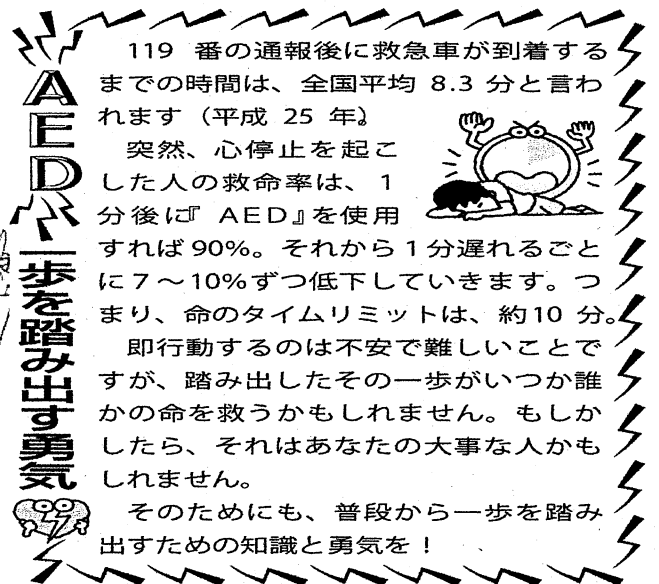 AED
一歩を踏み出す勇気
119 番の通報後に救急車が到着する
までの時間は、全国平均 8.3 分と言わ
れます（平成 25 年）。
突然、心停止を起こ
した人の救命率は、1
分後に『 AED』を使用
すれば 90%。それから 1 分遅れるごと
に 7 ～ 10%ずつ低下していきます。つ
まり、命のタイムリミットは、約10 分。
即行動するのは不安で難しいことで
すが、踏み出したその一歩がいつか誰
かの命を救うかもしれません。もしか
したら、それはあなたの大事な人かも
しれません。
そのためにも、普段から一歩を踏み
出すための知識と勇気を！